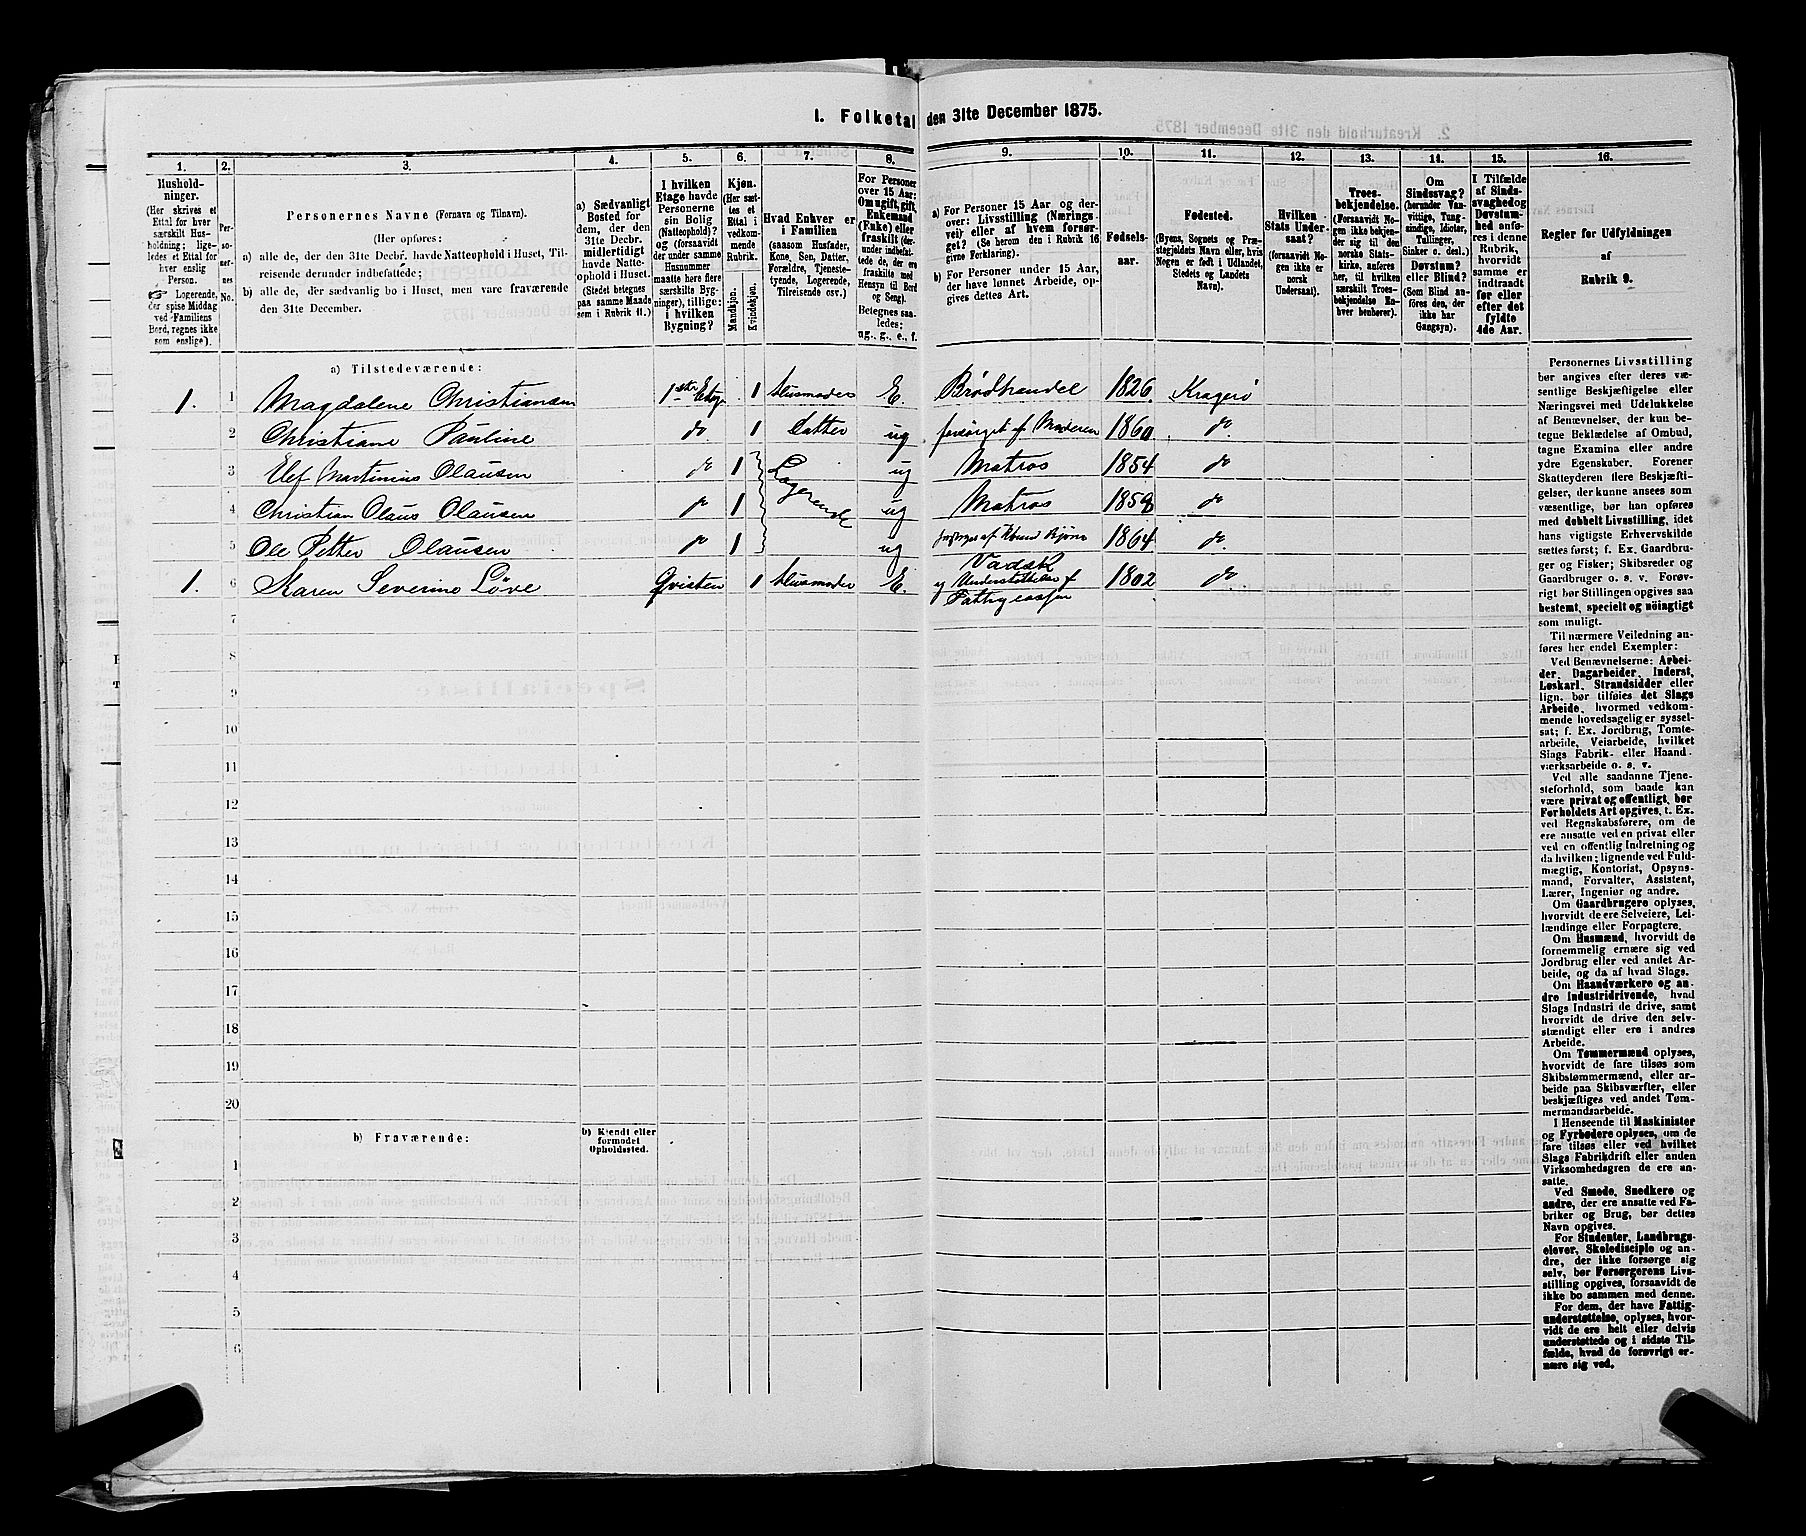 1. Folketal den 31te December 1875.
1. 2. 3. 4. 5. 6. 7. 8. 9. 10. 11. 12. 13. 14. 15. 16.
Hushold-
ninger.
(Her skrives et
Ettal for hver
særskilt Hus-
holdning; lige-
ledes et Ettal for
hver enslig
Person.
☞ Logerende,
der spise Middag
ved Familiens
Bord, regnes ikke
som enslige).
Per-
so-
ner-
nes
No.
Personernes Navne (Fornavn og Tilnavn).
(Her opføres:
a) alle de, der den 31te Decbr. havde Natteophold i Huset, Til-
reisende derunder indbefattede;
b) alle de, der sædvanlig bo i Huset, men vare fraværende
den 31te December.
a) Sædvanligt
Bosted for
dem, der den
31te Decbr.
midlertidigt
havde Natte-
ophold i Huset.
(Stedet betegnes
paa samme Maade
som i Rubrik 11.)
I hvilken
Etage havde
Personerne
sin Bolig
(Natteophold)?
og (forsaavidt
der under samme
Husnummer
maatte høre flere
særskilte Byg-
ninger), tillige:
i hvilken
Bygning?
Kjøn.
(Her sæt-
tes et
Ettal i
vedkom-
mende
Rubrik.
Mandkjøn.
Kvindekjøn.
Hvad Enhver er
i Familien
(saasom Husfader,
Kone, Søn, Datter,
Forældre, Tjeneste-
tyende, Logerende,
Tilreisende osv.)
For Personer
over 15 Aar:
Om ugift, gift,
Enkemand
(Enke) eller
fraskilt (der-
under indbefat-
tede de, der ere
fraskilte med
Hensyn til Bord
og Seng).
Betegnes saa-
ledes:
ug., g., e., f.
a) For Personer 15 Aar og der-
over: Livsstilling (Nærings-
vei) eller af hvem forsør-
get? (Se herom den i Rubrik 16
givne Forklaring).
b) For Personer under 15 Aar,
der have lønnet Arbeide, op-
gives dettes Art.
Fødsels-
aar.
Fødested.
(Byens, Sognets og Præ-
stegjeldets Navn eller, hvis
Nogen er født i Udlandet,
Stedets og Landets
Navn).
Hvilken
Stats Under-
saat?
(forsaavidt No-
gen ikke er
norsk
Undersaat).
Troes-
bekjendelse.
(Forsaavidt No-
gen ikke bekjen-
der sig til den
norske Stats-
kirke, anføres
her, til hvilken
særskilt Troes-
bekjendelse En-
hver henhører).
Om
Sindssvag?
(herunder Van-
vittige, Tung-
sindige, Idioter,
Tullinger,
Sinker o. desl.)
Døvstum?
eller Blind?
(Som Blind an-
føres den, der
ikke har
Gangsyn).
I Tilfælde
af Sinds-
svaghed og
Døvstum-
hed anfø-
res i denne
Rubrik,
hvorvidt
samme er
indtraadt
før eller
efter det
fyldte
4de Aar.
Regler for Udfyldningen
af
Rubrik 9.
a) Tilstedeværende:
1. 1 Magdalene Christiansen 1ste Etg. 1 Husmoder E. Brødhandel 1826. Kragerø
2 Christiane Pauline do. 1 Datter ug forsørget af Moderen 1860 do.
3 Elef Martinius Olausen do 1 Logerende ug Matros 1854 do
4 Christian Olaus Olausen do 1 ug Matros 1858 do
5 Ole Petter Olausen do 1 ug 1864 do.
1. 6 Maren Severine Løve Qvisten 1 Husmoder E. Vadsk 1802 do
og Understøttelse af
7
8
9
10
11
12
13
14
15
16
17
18
19
20
b) Fraværende:
b) Kjendt eller
formodet
Opholdssted.
1
2
3
4
5
6
Personernes Livsstilling
bør angives efter deres væ-
sentlige Beskjæftigelse eller
Næringsvei med Udelukkelse
af Benævnelser, der kun be-
tegne Beklædelse af Ombud,
tagne Examina eller andre
ydre Egenskaber. Forener
Skatteyderen flere Beskjæfti-
gelser, der kunne ansees som
væsentlige, bør han opføres
med dobbelt Livsstilling, idet
hans vigtigste Erhvervskilde
sættes først; f. Ex. Gaardbru-
ger og Fisker; Skibsreder og
Gaardbruger o. s. v. Forøv-
rigt bør Stillingen opgives saa
bestemt, specielt og nöiagtigt
som muligt.
Til nærmere Veiledning an-
føres her endel Exempler:
Ved Benævnelserne: Arbei-
der, Dagarbeider, Inderst,
Løskarl, Strandsidder eller
lign. bør tilføies det Slags
Arbeide, hvormed vedkom-
mende hovedsagelig er syssel-
sat; f. Ex. Jordbrug, Tomte-
arbeide, Veiarbeide, hvilket
Slags Fabrik- eller Haand-
værksarbeide o. s. v.
Ved alle saadanne Tjene-
steforhold, som baade kan
være privat og offentligt, bør
Forholdets Art opgives, t. Ex.
ved Regnskabsførere, om de
ere ansatte ved en privat eller
ved en offentlig Indretning og
da hvilken; lignende ved Fuld-
mægtig, Kontorist, Opsyns-
mand, Forvalter, Assistent,
Lærer, Ingeniør og andre.
Om Gaardbrugere oplyses,
hvorvidt de ere Selveiere, Lei-
lændinge eller Forpagtere.
Om Husmænd, hvorvidt de
fornemmelig ernære sig ved
Jordbrug eller ved andet Ar-
beide, og da af hvad Slags.
Om Haandværkere og an-
dre Industridrivende, hvad
Slags Industri de drive, samt
hvorvidt de drive den selv-
stændigt eller ere i andres
Arbeide.
Om Tømmermænd oplyses,
hvorvidt de fare tilsøs som
Skibstømmermænd, eller ar-
beide paa Skibsværfter, eller
beskjæftiges ved andet Tøm-
mermandsarbeide.
I Henseende til Maskinister
og Fyrbødere oplyses, om de
fare tilsøs eller ved hvilket
Slags Fabrikdrift eller anden
Virksomhedsgren de ere an-
satte.
Ved Smede, Snedkere og
andre, der ere ansatte ved Fa-
briker og Brug, bør dettes
Navn opgives.
For Studenter, Landbrugs-
elever, Skoledisciple og an-
dre, der ikke forsørge sig
selv, bør Forsørgerens Livs-
stilling opgives, forsaavidt de
ikke bo sammen med denne.
For dem, der have Fattig-
understøttelse, oplyses, hvor-
vidt de ere helt eller delvis
understøttede og i sidste Til-
fælde, hvad de forøvrigt er-
nære sig ved.